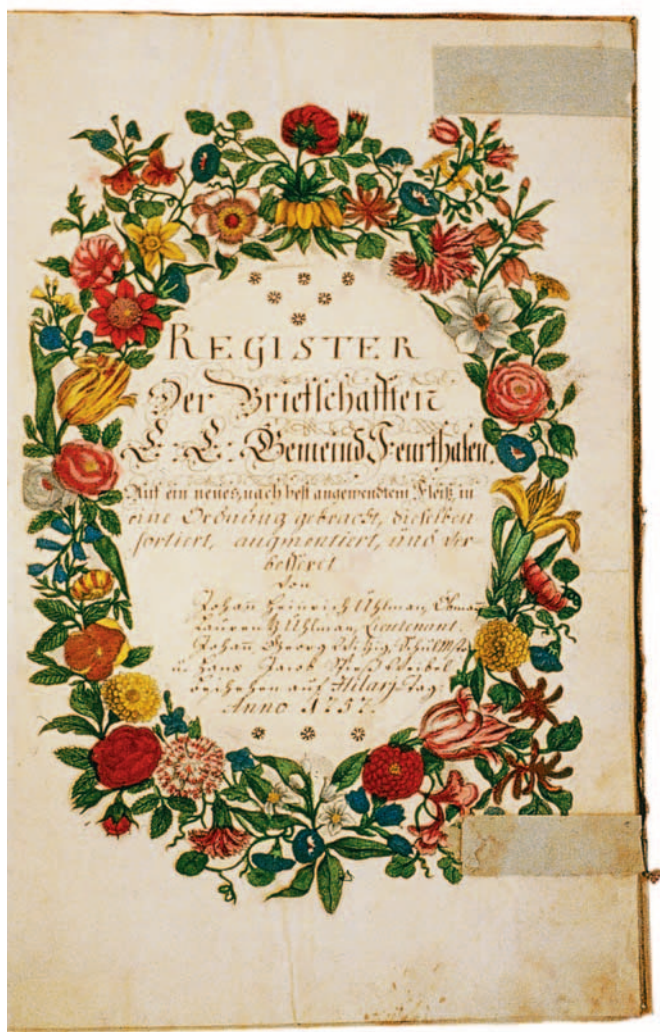 REGISTER
Der Brieffschafften
E. E. Gemeind Feurthalen.
Auf ein neues, nach best angewendtem Fleiß in
eine Ordnung gebracht, dieselben
sortiert, augmentiert, und ver-
besseret
von
Johan Heinrich Uhlman,
Uhlman, Lieutenant.
Johan Georg
u. Hans Jacob
beschehen auf Hilarj Tag.
Anno 1757.